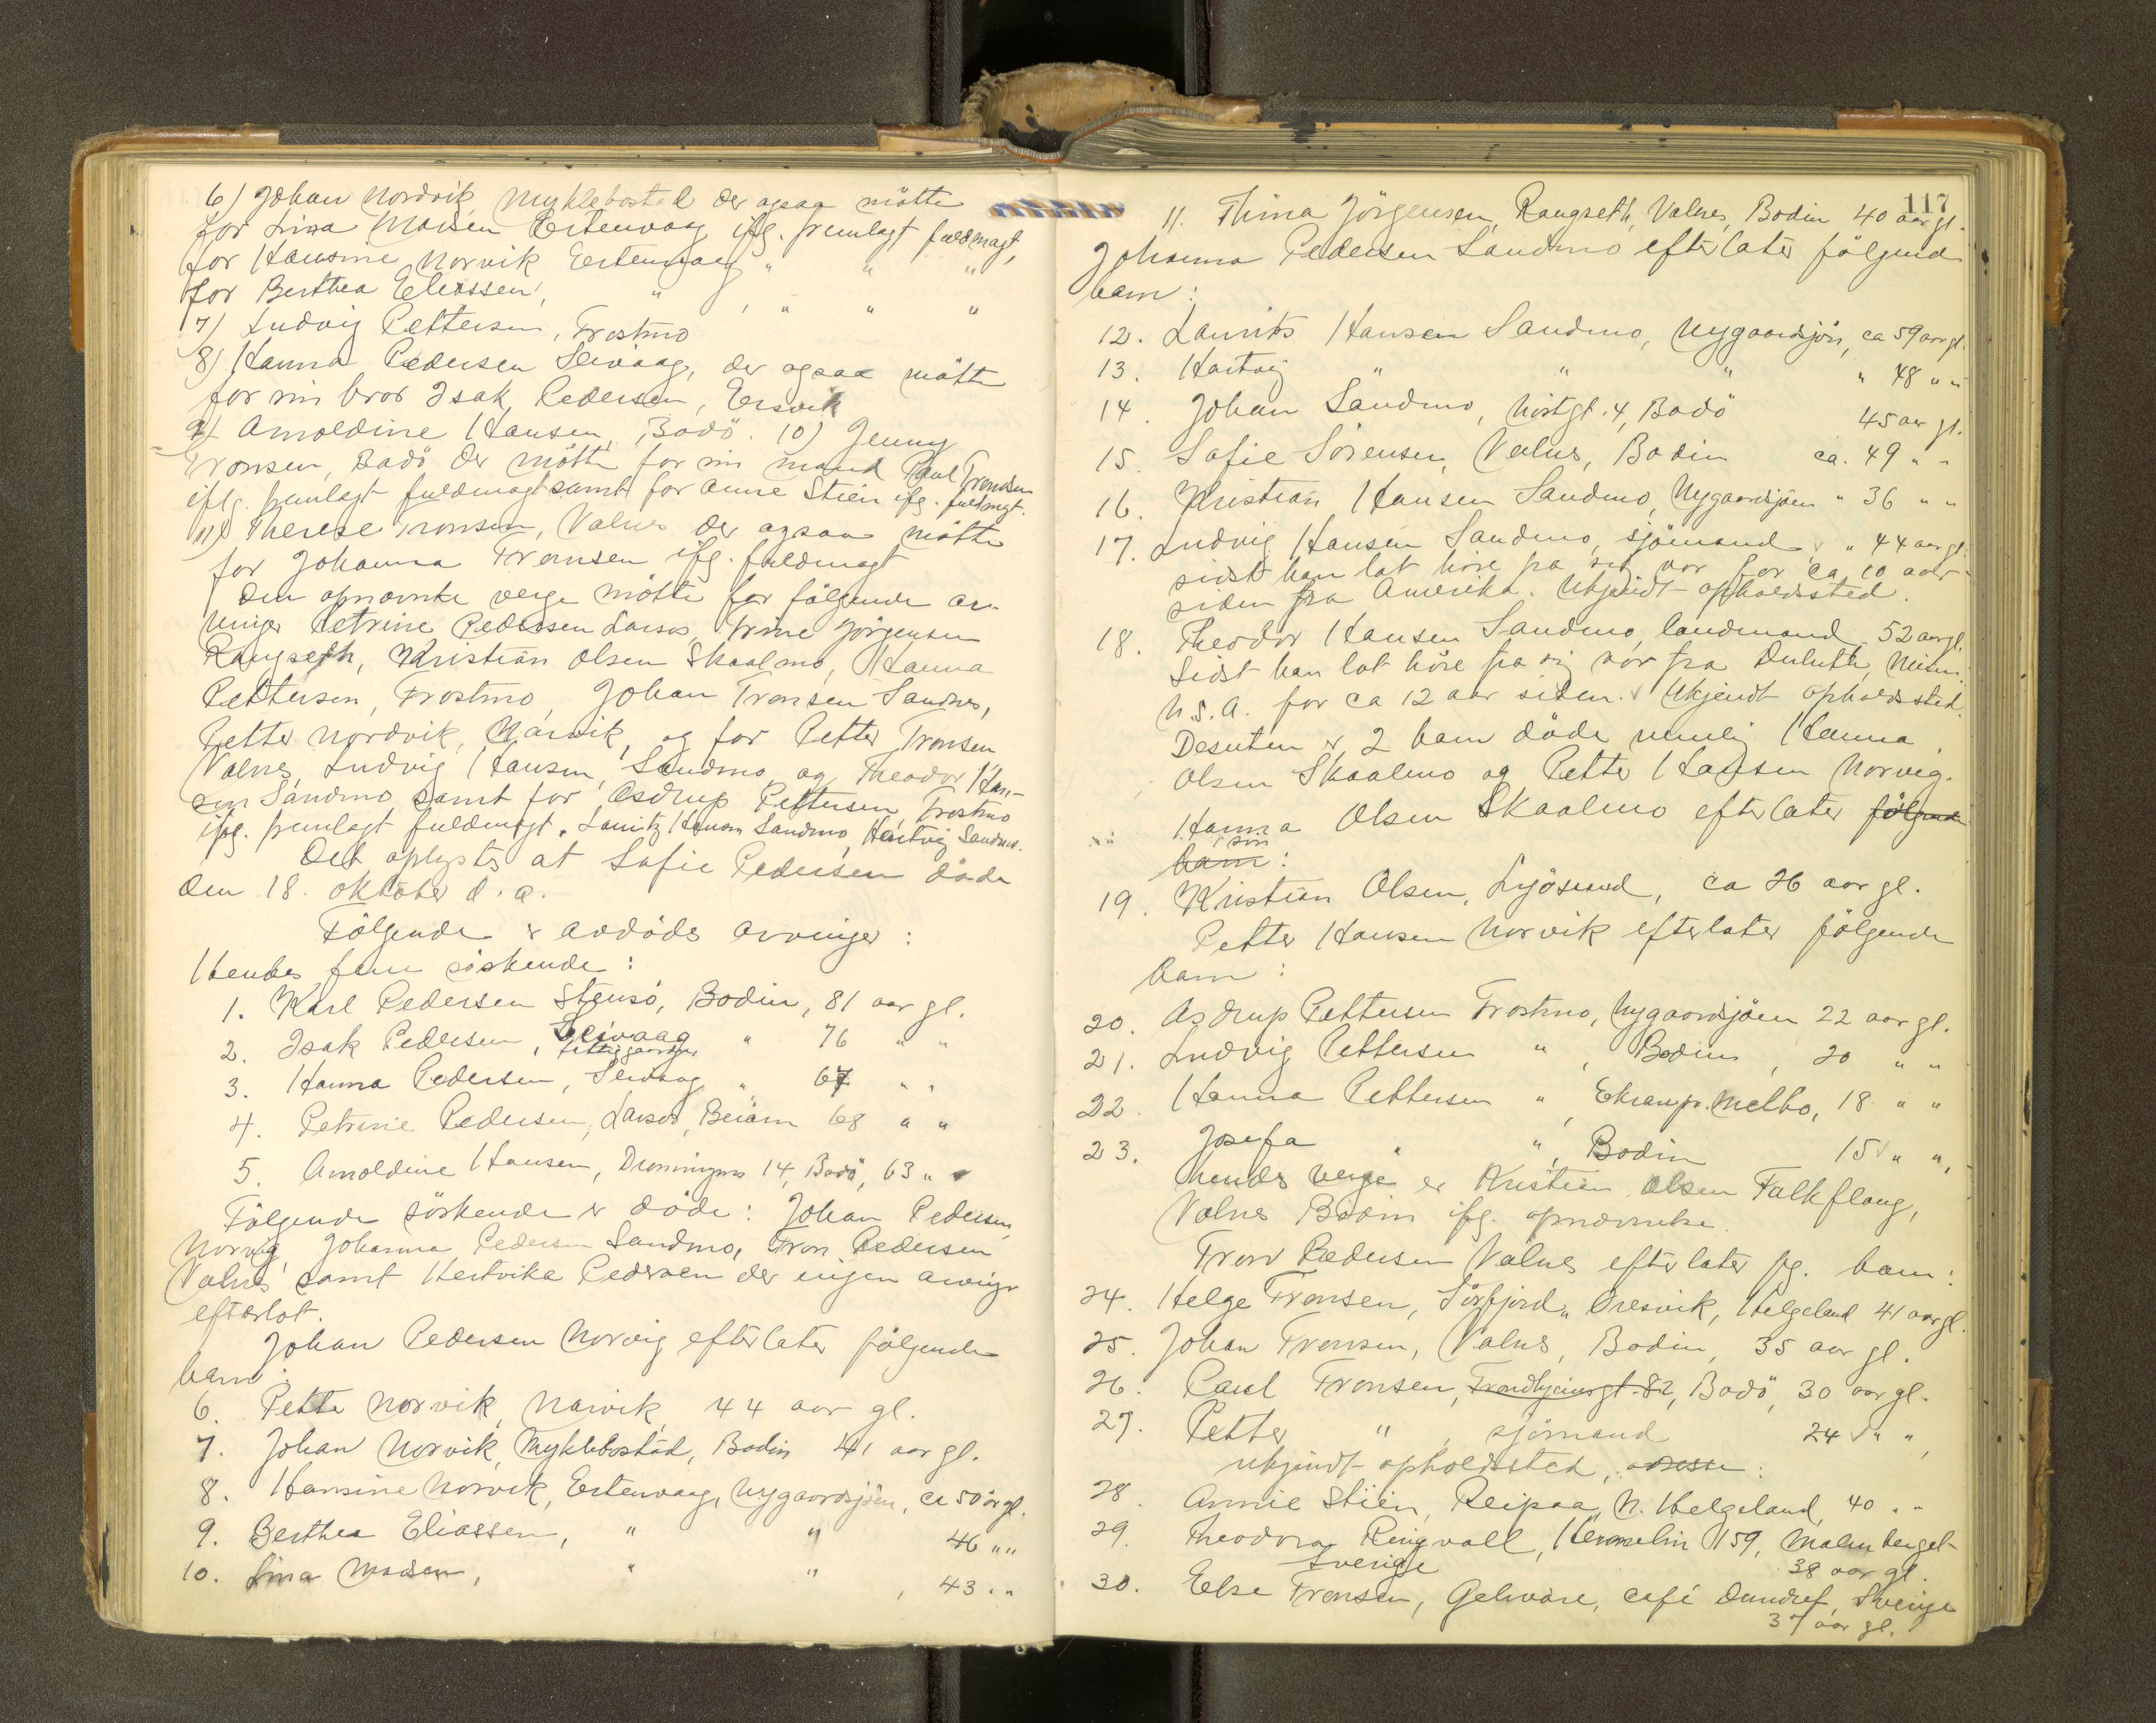 6) Johan Nordvik Myklebostad der ogsaa mötte
for Lina Madsen Ertenvaag iflg. fremlagt fuldmagt,
for Hansine Norvik Ertenvaag " " "
for Berthea Eliassen, " , " " "
7) Ludvig Pettersen, Trostmo
8) Hanna Pedersen Seivaag, der ogsaa mötte
for sin bror Isak Pedersen, Ersvik
9) Arnoldine Hansen, Bodö. 10) Jenny
Tronsen, Bodö der mötte for sin mand Paul Tronsen
iflg. fremlagt fuldmagt samt for Anne Stien iflg. fuldmagt.
11) Therese Tronsen, Valnes der ogsaa mötte
for Johanna Tronsen iflg. fuldmagt
Den opnævnte verge mötte for fölgende ar-
vinger Petrine Pedersen Larsos, Trine Jörgensen
Rangseth, Kristian Olsen Skaalmo, Hanna
Pettersen, Trostmo, Johan Tronsen Sandnes,
Petter Nordvik, Narvik, og for Petter Tronsen
Valnes, Ludvig Hansen, Sandmo og Theodor Han-
sen Sandmo samt for Asdrup Pettersen, Trostmo
iflg. fremlagt fuldmagt, Lauritz Hansen Sandmo, Hartvig Sandmo.
Det oplystes at Sofie Pedersen döde
den 18. oktober d. a.
Fölgende er avdödes arvinger:
Hendes fem söskende:
1. Karl Pedersen Stensö, Bodin, 81 aar gl.
2. Isak Pedersen, Seivaag " 76 " "
3. Hanna Pedersen, Seivaag " 67 " "
4. Petrine Pedersen, Larsos, Beiarn 68 " "
5. Arnoldine Hansen, Dronningens 14, Bodö, 63 "
Fölgende söskende er döde: Johan Pedersen
Norvig, Johanna Pedersen Sandmo, Tron Pedersen
Valnes samt Hertvika Pedersen der ingen arvinger
efterlot.
Johan Pedersen Norvig efterlater fölgende
barn:
6. Petter Norvik, Narvik, 44 aar gl.
7. Johan Norvik, Myklebostad, Bodin 41 aar gl.
8. Hansine Norvik, Ertenvaag, Nygaardsjöen, ca 50 år gl.
9. Berthea Eliassen, " " 46 " "
10. Lina Madsen, " " , 43 " "
117
11. Thina Jörgensen, Rangseth, Valnes, Bodin 40 aar gl.
Johanna Pedersen Sandmo efterlater fölgende
barn:
12. Laurits Hansen Sandmo, Nygaardsjön, ca 59 aar gl.
13. Hartvig " " " " 48 " "
14. Johan Sandmo, Nostgt. 4, Bodö 45 aar gl.
15. Sofie Sörensen, Valnes, Bodin ca. 49 " "
16. Kristian Hansen Sandmo, Nygaardsjöen " 36 " "
17. Ludvig Hansen Sandmo, sjömand " 44 aar gl.
sidst han lot höre fra sig var for ca 10 aar
siden fra Amerika. Ukjendt opholdssted.
18. Theodor Hansen Sandmo, landmand 52 aar gl.
Sidst han lot höre fra sig var fra Duluth, Minn.
U.S.A. for ca 12 aar siden. Ukjendt opholdssted.
Desuten er 2 barn döde nemlig Hanna
Olsen Skaalmo og Petter Hansen Norvig.
Hanna Olsen Skaalmo efterlater fölgende
sön
barn:
19. Kristian Olsen, Lyösund, ca 26 aar gl.
Petter Hansen Norvik efterlater fölgende
barn:
20. Asdrup Pettersen Trostmo, Nygaardsjöen 22 aar gl.
21. Ludvig Pettersen " , Bodin, 20 " "
22. Hanna Pettersen " , Melbo, 18 " "
23. Josefa " " , Bodin 15 " ",
hendes verge er Kristian Olsen Falkflaug,
Valnes Bodin iflg. opnævnelse.
Tron Pedersen Valnes efterlater flg. barn:
24. Helge Tronsen, Sörfjord, Oresvik, Helgeland 41 aar gl.
25. Johan Tronsen, Valnes, Bodin, 35 aar gl.
26. Paul Tronsen, Trondhjemsgt. 82, Bodö, 30 aar gl.
27. Petter " , sjömand 24 " "
ukjendt opholdssted, adresse:
28. Annie Stiën, Reipaa, N. Helgeland, 40 " "
29. Theodora Ringvall, Hermelin 159, Malmberget
Sverige 38 aar gl.
30. Else Tronsen, Gelivare, café Dundret, Sverige
37 aar gl.